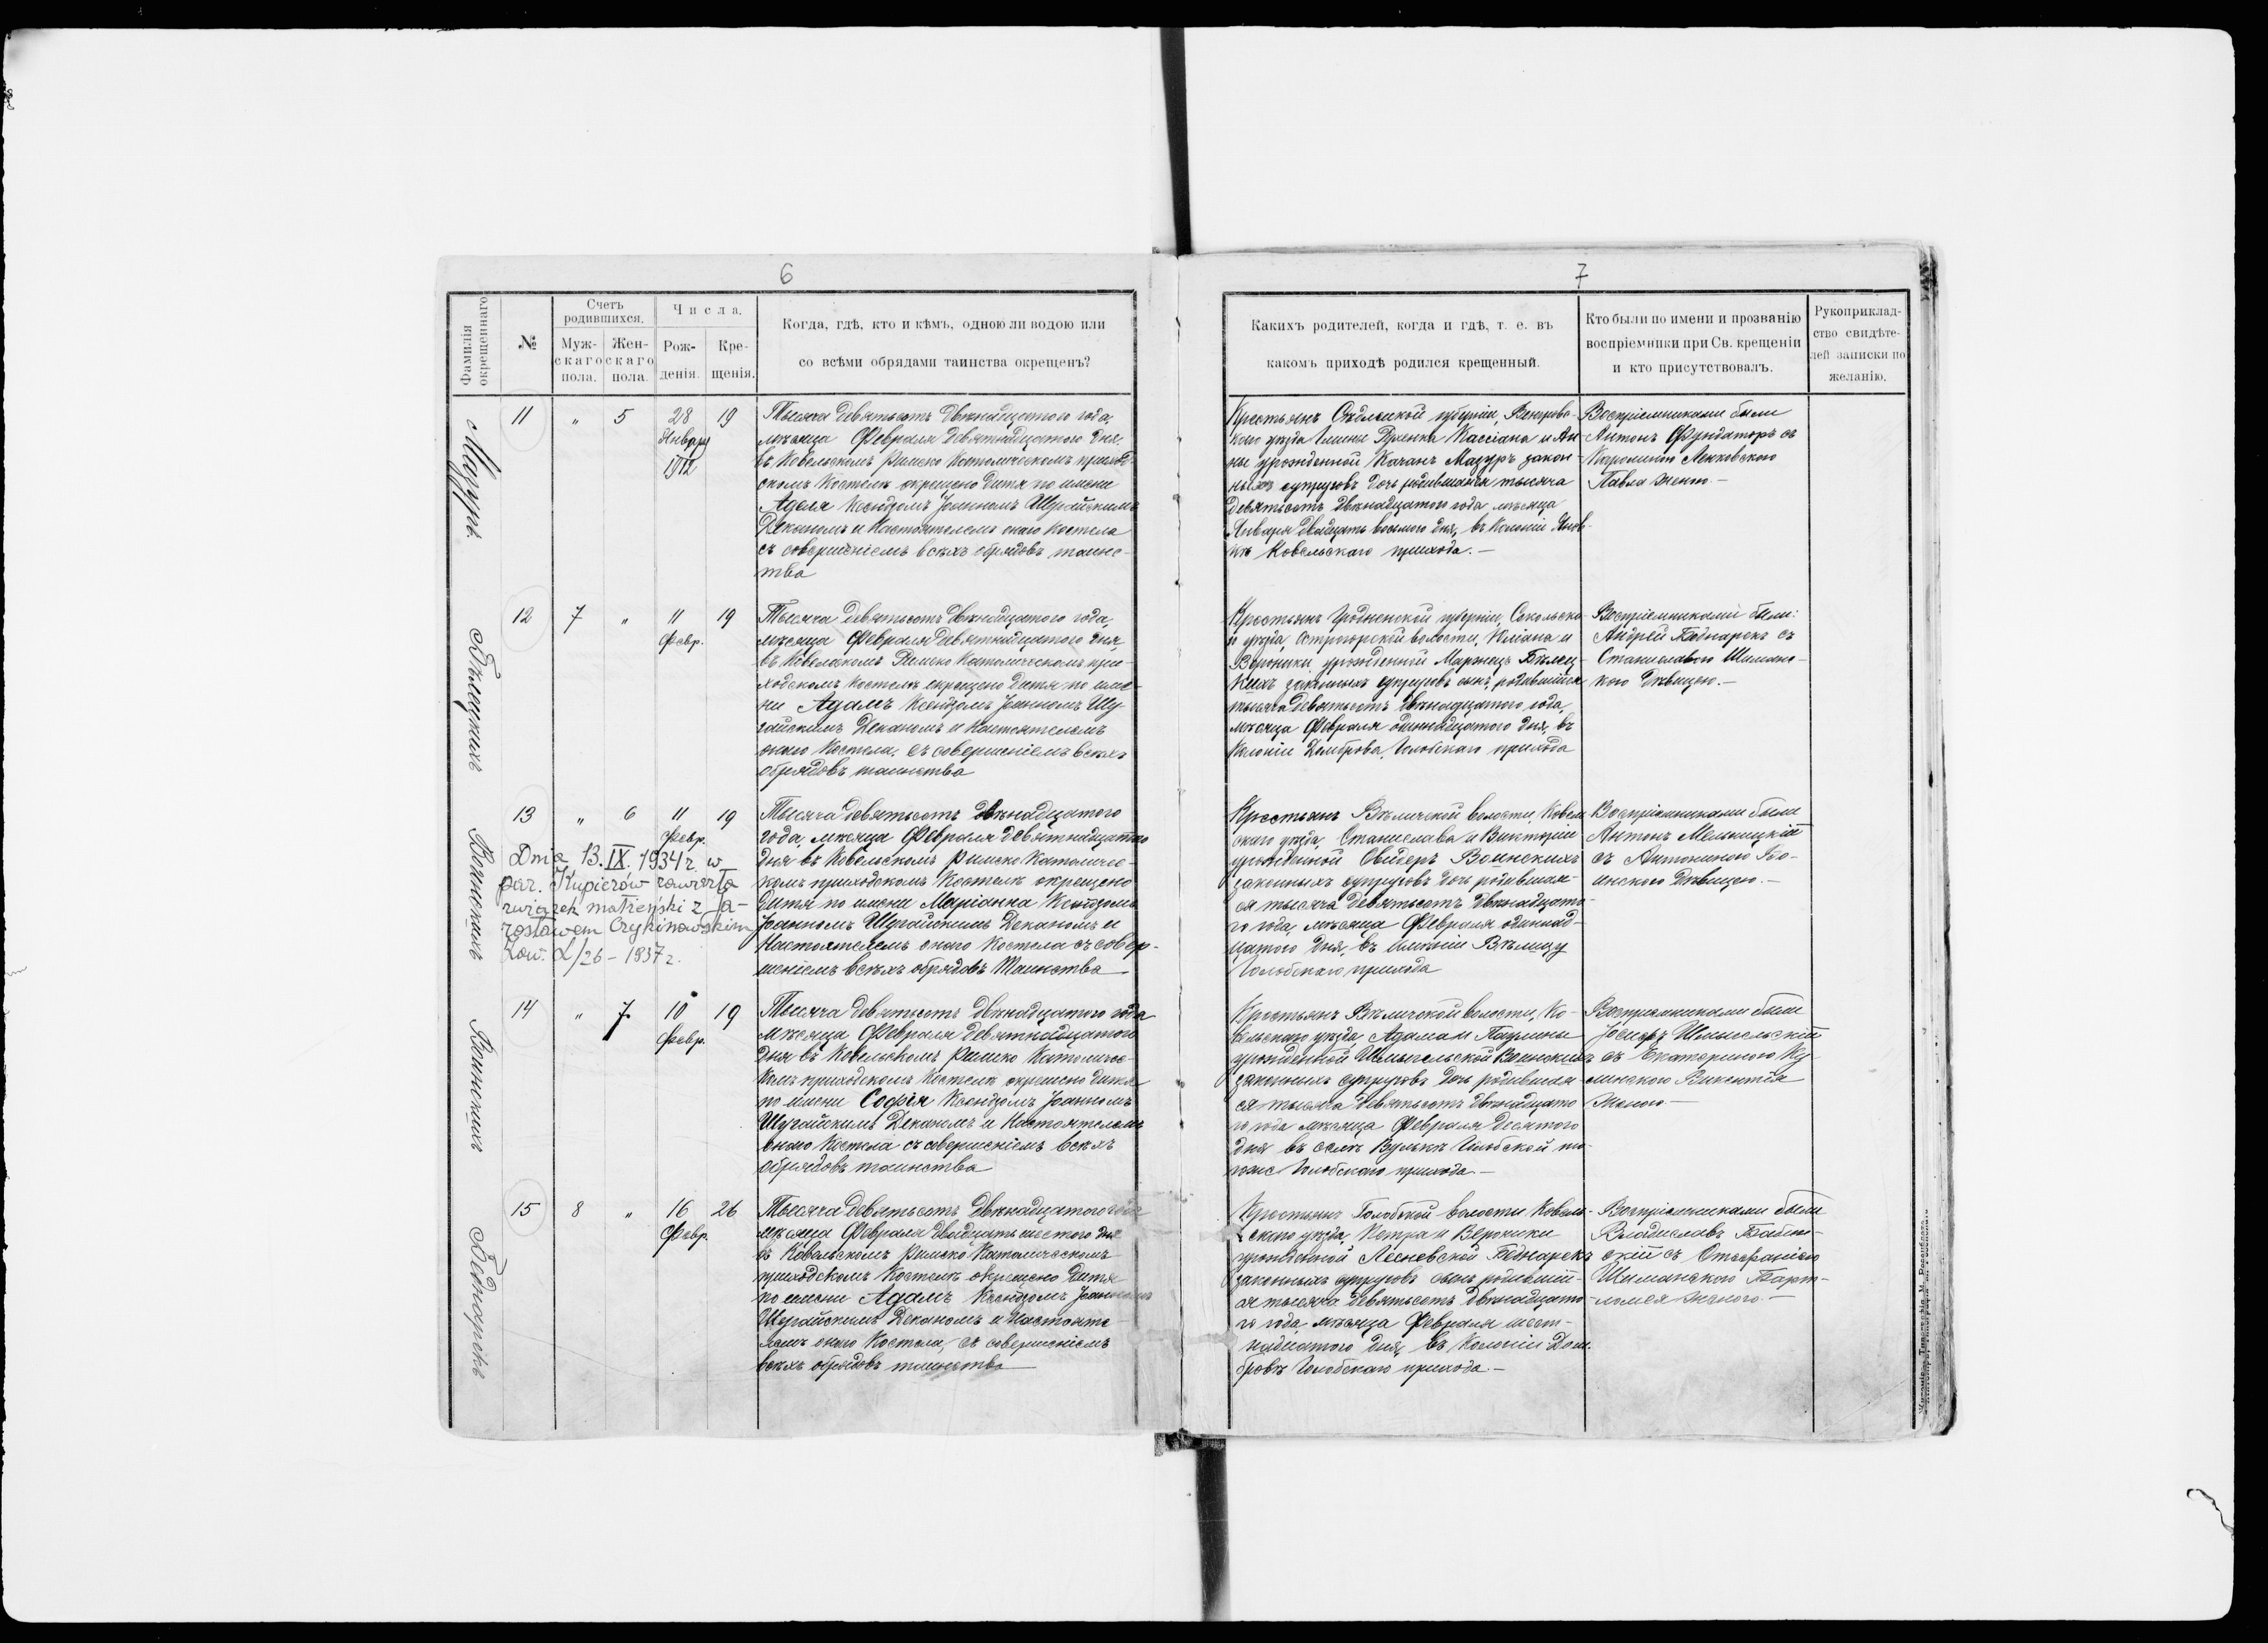 6
Фамилія окрещеннаго
№
Счетъ родившихся.
Мужскаго пола.
Женскаго пола.
Числа.
Рожденія.
Крещенія.
Когда, гдѣ, кто и кѣмъ, одною ли водою или
со всѣми обрядами таинства окрещенъ?
Мазуръ
11
"
5
28
Январу
1912
19
Тысяча девятьсотъ двѣнадцатого года,
мѣсяца Февраля девятнадцатого дня,
въ Ковельскомъ Римско Католическомъ приход-
скомъ Костелѣ окрещено дитя по имени
Аделя Ксендзомъ Іоанномъ
Деканомъ и Настоятелемъ онаго Костела
съ совершеніемъ всѣхъ обрядовъ таинс-
тва
Бѣлецкихъ
12
7
"
11
Февр.
19
Тысяча девятьсотъ двѣнадцатого года,
мѣсяца Февраля девятнадцатого дня,
въ Ковельскомъ Римско Католическомъ при-
ходскомъ Костелѣ окрещено дитя по име-
ни Адамъ Ксендзомъ Іоанномъ
Деканомъ и Настоятелемъ
онаго Костела, съ совершеніемъ всѣхъ
обрядовъ таинства
Воинскихъ
13
"
6
11
Февр.
19
Dnia 13.IX.1934 r. w
par. Kupiczów zawarła
związek małżeński z Ja-
rosławem
1937 r.
Тысяча девятьсотъ двѣнадцатого
года, мѣсяца Февраля девятнадцатого
дня въ Ковельскомъ Римско Католичес-
комъ приходскомъ Костелѣ окрещено
дитя по имени Маріанна Ксендзомъ
Іоанномъ Деканомъ и
Настоятелемъ онаго Костела съ совер-
шеніемъ всѣхъ обрядовъ Таинства
Воинскихъ
14
"
7
10
Февр.
19
Тысяча девятьсотъ двѣнадцатого года
мѣсяца Февраля девятнадцатого
дня въ Ковельскомъ Римско Католичес-
комъ приходскомъ Костелѣ окрещено дитя
по имени Софія Ксендзомъ Іоанномъ
Деканомъ и Настоятелемъ
онаго Костела съ совершеніемъ всѣхъ
обрядовъ таинства
Беднарекъ
15
8
"
16
Февр.
26
Тысяча девятьсотъ двѣнадцатого года
мѣсяца Февраля двадцать шестого дня
въ Ковельскомъ Римско Католическомъ
приходскомъ Костелѣ окрещено дитя
по имени Адамъ Ксендзомъ Іоанномъ
Деканомъ и Настояте-
лемъ онаго Костела, съ совершеніемъ
всѣхъ обрядовъ таинства
7
Какихъ родителей, когда и гдѣ, т. е. въ
какомъ приходѣ родился крещенный.
Кто были по имени и прозванію
воспріемники при Св. крещеніи
и кто присутствовалъ.
Рукоприклад-
ство свидѣте-
лей записки по
желанію.
Крестьянъ Сѣдлецкой губерніи, Венгровс-
каго уѣзда Гмины Кассіана и Ан-
ны урожденной Качанъ Мазуръ закон-
ныхъ супруговъ дочь родившаяся тысяча
девятьсотъ двѣнадцатого года, мѣсяца
Января двадцать восьмого дня, въ Колоніи
Ковельскаго прихода.—
Воспріемниками были
Антонъ Фундаторъ съ
Каролиною Ленковскою
Павла женою.—
Крестьянъ Гродненской губерніи, Сокольска-
го уѣзда, волости, и
Вероники урожденной Бѣлец-
кихъ законныхъ супруговъ сынъ, родившійся
тысяча девятьсотъ двѣнадцатого года,
мѣсяца Февраля одиннадцатого дня, въ
Колоніи Домброва, Голобскаго прихода
Воспріемниками были:
Андрей Беднарекъ съ
Станиславою Шиманс-
кою дѣвицею.—
Крестьянъ Вѣличской волости, Ковель
скаго уѣзда, Станислава и Викторіи
урожденной Свидеръ Воинскихъ
законныхъ супруговъ дочь родившая-
ся тысяча девятьсотъ двѣнадцато-
го года, мѣсяца Февраля одиннад-
цатого дня, въ имѣніи Вѣлицку
Голобскаго прихода
Воспріемниками были
Антонъ Мельницкій
съ Антониною Во-
инскою дѣвицею.—
Крестьянъ Вѣличской волости, Ко-
вельскаго уѣзда Адама и Паулины
урожденной Воинскихъ
законныхъ супруговъ дочь родившая-
ся тысяча девятьсотъ двѣнадцато
го года мѣсяца Февраля десятого
дня въ селѣ Вулькѣ Голобской
Голобскаго прихода.—
Воспріемниками были
Іосифъ
съ Екатериною
Викентія
женою—
Крестьянъ Голобской волости Ковель-
скаго уѣзда, Петра и Вероники
урожденной Лесневской Беднарекъ
законныхъ супруговъ сынъ родивший-
ся тысяча девятьсотъ двѣнадцато-
го года мѣсяца Февраля шест-
надцатого дня, въ Колоніи Дом-
бровѣ Голобскаго прихода.—
Воспріемниками были
Владиславъ
съ Стефаніею
Шиманскою Барт-
ломея женою.—